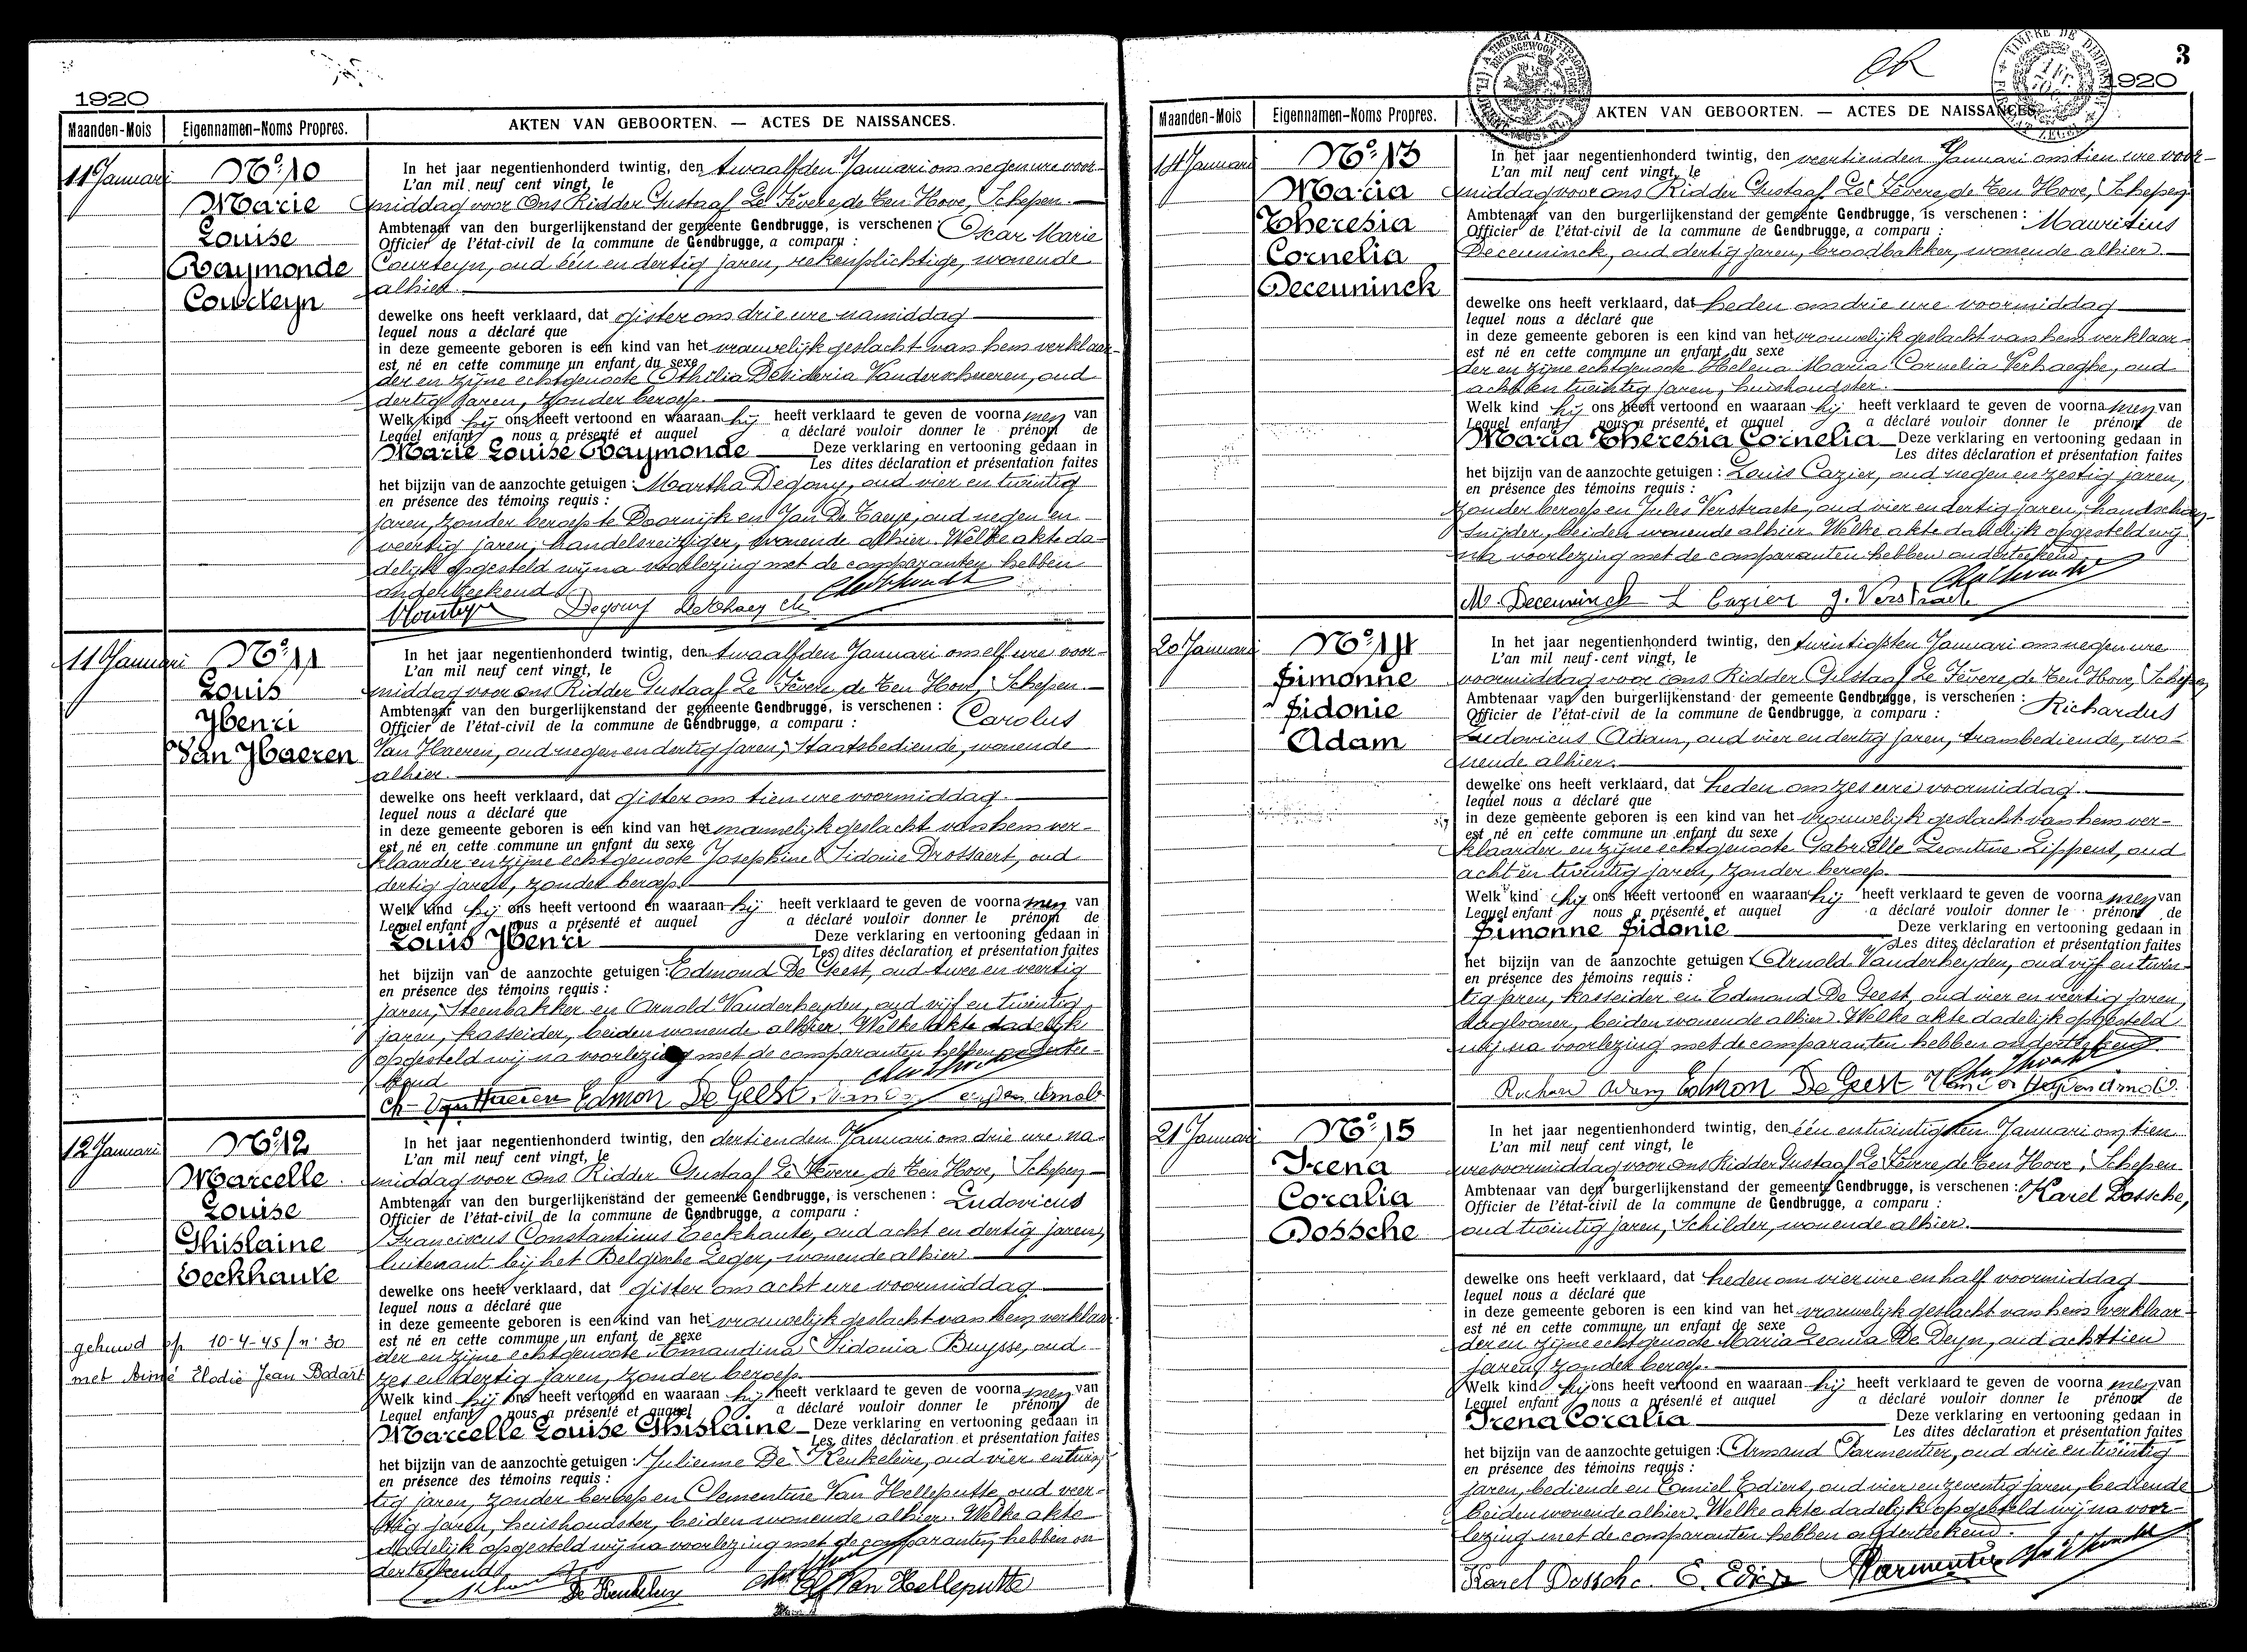 1920
Maanden-Mois
Eigennamen-Noms Propres.
AKTEN VAN GEBOORTEN. — ACTES DE NAISSANCES.
11 Januari
No. 10
Marie
Louise
Raymonde
Courteyn
In het jaar negentienhonderd twintig, den twaalfden Januari om negen ure voor-
L'an mil neuf cent vingt, le
middag voor Ons Ridder Gustaaf Le Fèvere de Ten Hove, Schepen
Ambtenaar van den burgerlijkenstand der gemeente Gendbrugge, is verschenen : Oscar Marie
Officier de l'état-civil de la commune de Gendbrugge, a comparu :
Courteyn, oud één en dertig jaren, rekenplichtige, wonende
alhier.
dewelke ons heeft verklaard, dat gister om drie ure namiddag
lequel nous a déclaré que
in deze gemeente geboren is een kind van het vrouwelijk geslacht van hem verklaar-
est né en cette commune un enfant du sexe
der en zijne echtgenoote Othilia Desideria Vanderscheueren, oud
dertig jaren, zonder beroep.
Welk kind hij ons heeft vertoond en waaraan hij heeft verklaard te geven de voornamen van
Lequel enfant nous a présenté et auquel a déclaré vouloir donner le prénom de
Marie Louise Raymonde Deze verklaring en vertooning gedaan in
Les dites déclaration et présentation faites
het bijzijn van de aanzochte getuigen : Martha Degouy, oud vier en twintig
en présence des témoins requis :
jaren, zonder beroep te Doornijk en Jan De Taeye, oud negen en
veertig jaren, handelsreiziger, wonende alhier. Welke akte da-
delijk opgesteld wij na voorlezing met de comparanten hebben
onderteekend
Degouy
11 Januari
No. 11
Louis
Henri
Van Haeren
In het jaar negentienhonderd twintig, den twaalfden Januari om elf ure voor-
L'an mil neuf cent vingt, le
middag voor ons Ridder Gustaaf Le Fèvere de Ten Hove, Schepen
Ambtenaar van den burgerlijkenstand der gemeente Gendbrugge, is verschenen : Carolus
Officier de l'état-civil de la commune de Gendbrugge, a comparu :
Van Haeren, oud negen en dertig jaren, Staatsbediende, wonende
alhier.
dewelke ons heeft verklaard, dat gister om tien ure voormiddag
lequel nous a déclaré que
in deze gemeente geboren is een kind van het mannelijk geslacht van hem ver-
est né en cette commune un enfant du sexe
klaarder en zijne echtgenoote Josephine Sidonie Drossaert, oud
dertig jaren, zonder beroep.
Welk kind hij ons heeft vertoond en waaraan hij heeft verklaard te geven de voornamen van
Lequel enfant nous a présenté et auquel a déclaré vouloir donner le prénom de
Louis Henri Deze verklaring en vertooning gedaan in
Les dites déclaration et présentation faites
het bijzijn van de aanzochte getuigen : Edmond De Geest, oud twee en veertig
en présence des témoins requis :
jaren, Steenbakker en Arnold Vanderheyden, oud vijf en twintig
jaren, kasseider, beiden wonende alhier. Welke akte dadelijk
opgesteld wij na voorlezing met de comparanten hebben ondertee-
kend
Ch. Van Haeren Edmon De Geest
12 Januari
No. 12
Marcelle
Louise
Ghislaine
Eeckhaute
gehuwd op 10-4-45 / n° 30
met Aimé Elodie Jean Bodart
In het jaar negentienhonderd twintig, den dertienden Januari om drie ure na-
L'an mil neuf cent vingt, le
middag voor Ons Ridder Gustaaf Le Fèvere de Ten Hove, Schepen
Ambtenaar van den burgerlijkenstand der gemeente Gendbrugge, is verschenen : Ludovicus
Officier de l'état-civil de la commune de Gendbrugge, a comparu :
Franciscus Constantinus Eeckhaute, oud acht en dertig jaren,
luitenant bij het Belgische Leger, wonende alhier
dewelke ons heeft verklaard, dat gister om acht ure voormiddag
lequel nous a déclaré que
in deze gemeente geboren is een kind van het vrouwelijk geslacht van hem verklaar-
est né en cette commune un enfant de sexe
der en zijne echtgenoote Amandina Sidonia Buysse, oud
zes en dertig jaren, zonder beroep.
Welk kind hij ons heeft vertoond en waaraan hij heeft verklaard te geven de voornamen van
Lequel enfant nous a présenté et auquel a déclaré vouloir donner le prénom de
Marcelle Louise Ghislaine Deze verklaring en vertooning gedaan in
Les dites déclaration et présentation faites
het bijzijn van de aanzochte getuigen : Julienne De Keukeleire, oud vier en twin-
en présence des témoins requis :
tig jaren, zonder beroep en Clementine Van Helleputte, oud veer-
tig jaren, huishoudster, beiden wonende alhier. Welke akte
dadelijk opgesteld wij na voorlezing met de comparanten hebben on
derteekend
Van Helleputte
3
1920
Maanden-Mois
Eigennamen-Noms Propres.
AKTEN VAN GEBOORTEN. — ACTES DE NAISSANCES.
14 Januari
No. 13
Maria
Theresia
Cornelia
Deceuninck
In het jaar negentienhonderd twintig, den veertienden Januari om tien ure voor-
L'an mil neuf cent vingt, le
middag voor ons Ridder Gustaaf Le Fèvere de Ten Hove, Schepen
Ambtenaar van den burgerlijkenstand der gemeente Gendbrugge, is verschenen : Mauritius
Officier de l'état-civil de la commune de Gendbrugge, a comparu :
Deceuninck, oud dertig jaren, broodbakker, wonende alhier
dewelke ons heeft verklaard, dat heden om drie ure voormiddag
lequel nous a déclaré que
in deze gemeente geboren is een kind van het vrouwelijk geslacht van hem verklaar-
est né en cette commune un enfant du sexe
der en zijne echtgenoote Helena Maria Cornelia Verhaeghe, oud
acht en twintig jaren, huishoudster.
Welk kind hij ons heeft vertoond en waaraan hij heeft verklaard te geven de voornamen van
Lequel enfant nous a présenté et auquel a déclaré vouloir donner le prénom de
Maria Theresia Cornelia Deze verklaring en vertooning gedaan in
Les dites déclaration et présentation faites
het bijzijn van de aanzochte getuigen : Louis Cazier, oud negen en zestig jaren,
en présence des témoins requis :
zonder beroep en Jules Verstraete, oud vier en dertig jaren, handschoen-
snijder, beiden wonende alhier. Welke akte dadelijk opgesteld wij
na voorlezing met de comparanten hebben onderteekend
M. Deceuninck L Cazier J. Verstraete
20 Januari
No. 14
Simonne
Sidonie
Adam
In het jaar negentienhonderd twintig, den twintigsten Januari om negen ure
L'an mil neuf cent vingt, le
voormiddag voor ons Ridder Gustaaf Le Fèvere de Ten Hove, Schepen
Ambtenaar van den burgerlijkenstand der gemeente Gendbrugge, is verschenen : Richardus
Officier de l'état-civil de la commune de Gendbrugge, a comparu :
Ludovicus Adam, oud vier en dertig jaren, trambediende, wo-
nende alhier.
dewelke ons heeft verklaard, dat heden om zes ure voormiddag
lequel nous a déclaré que
in deze gemeente geboren is een kind van het vrouwelijk geslacht van hem ver-
est né en cette commune un enfant du sexe
klaarder en zijne echtgenoote Gabrielle Leontine Lippens, oud
acht en twintig jaren, zonder beroep.
Welk kind hij ons heeft vertoond en waaraan hij heeft verklaard te geven de voornamen van
Lequel enfant nous a présenté et auquel a déclaré vouloir donner le prénom de
Simonne Sidonie Deze verklaring en vertooning gedaan in
Les dites déclaration et présentation faites
het bijzijn van de aanzochte getuigen : Arnold Vanderheyden, oud vijf en twin-
en présence des témoins requis :
tig jaren, kasseider en Edmond De Geest, oud vier en veertig jaren,
daglooner, beiden wonende alhier. Welke akte dadelijk opgesteld
wij na voorlezing met de comparanten hebben onderteekend
Richard Adam Edmon De Geest Van der Heyden Arnold
21 Januari
No. 15
Irena
Coralia
Dossche
In het jaar negentienhonderd twintig, den één en twintigsten Januari om tien
L'an mil neuf cent vingt, le
ure voormiddag voor Ons Ridder Gustaaf Le Fèvere de Ten Hove, Schepen
Ambtenaar van den burgerlijkenstand der gemeente Gendbrugge, is verschenen : Karel Dossche,
Officier de l'état-civil de la commune de Gendbrugge, a comparu :
oud twintig jaren, Schilder, wonende alhier.
dewelke ons heeft verklaard, dat heden om vier ure en half voormiddag
lequel nous a déclaré que
in deze gemeente geboren is een kind van het vrouwelijk geslacht van hem verklaar-
est né en cette commune un enfant de sexe
der en zijne echtgenoote Maria Leonia De Deyn, oud achttien
jaren, zonder beroep.
Welk kind hij ons heeft vertoond en waaraan hij heeft verklaard te geven de voornamen van
Lequel enfant nous a présenté et auquel a déclaré vouloir donner le prénom de
Irena Coralia Deze verklaring en vertooning gedaan in
Les dites déclaration et présentation faites
het bijzijn van de aanzochte getuigen : Armand Parmentier, oud drie en twintig
en présence des témoins requis :
jaren, bediende en Emiel Ediers, oud vier en zeventig jaren, bediende
beiden wonende alhier. Welke akte dadelijk opgesteld wij na voor-
lezing met de comparanten hebben onderteekend.
Karel Dossche. E. Ediers Parmentier